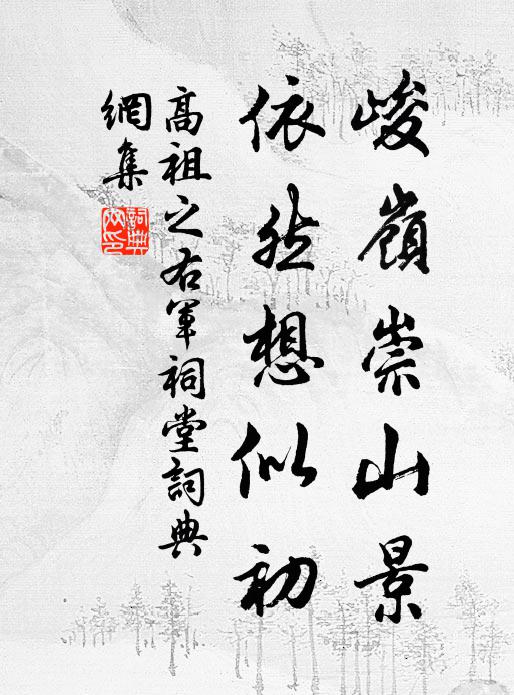 峻嶺崇山景
依然想似初
高祖之右軍祠堂詞典
網集
詞典
网印